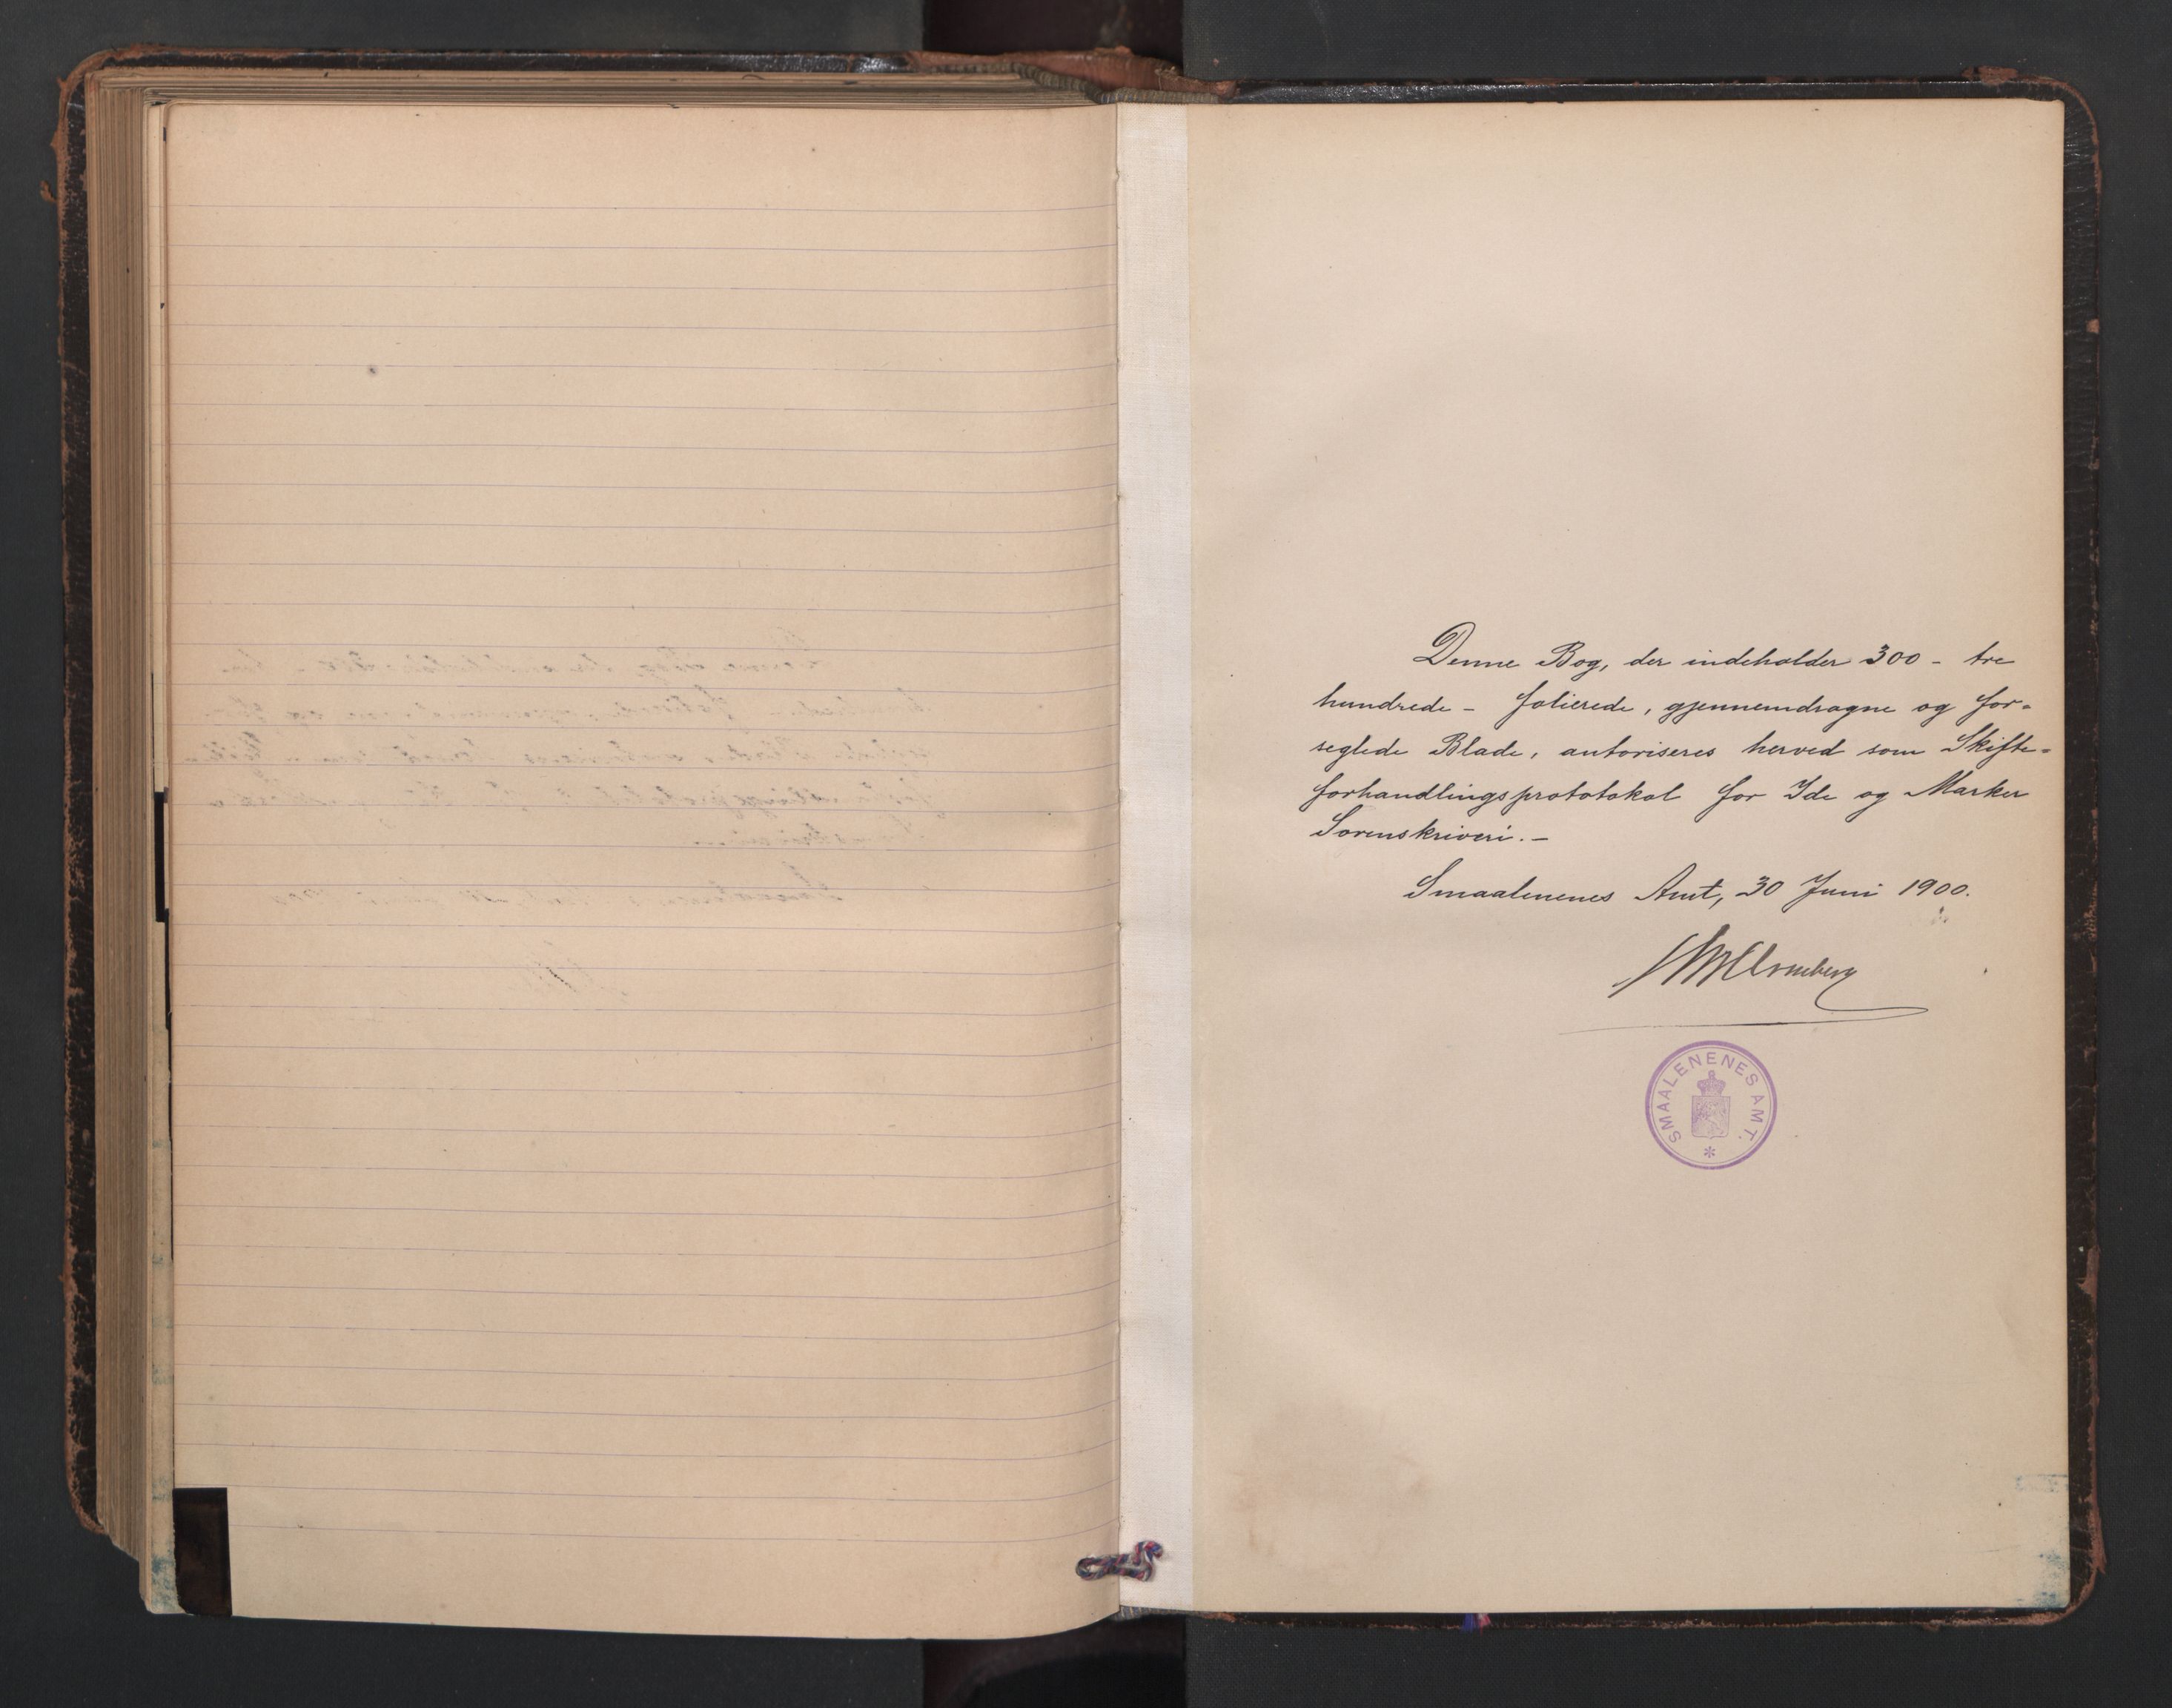 Denne Bog, der indeholder 300 - tre
hundrede - folierede, gjennemdragne og for=
seglede Blade, autoriseres herved som Skifte=
forhandlingsprototokol for Ide og Marker
Sorenskriveri. -
Smaalenenes Amt, 30 Juni 1900.
SMAALENENES AMT.